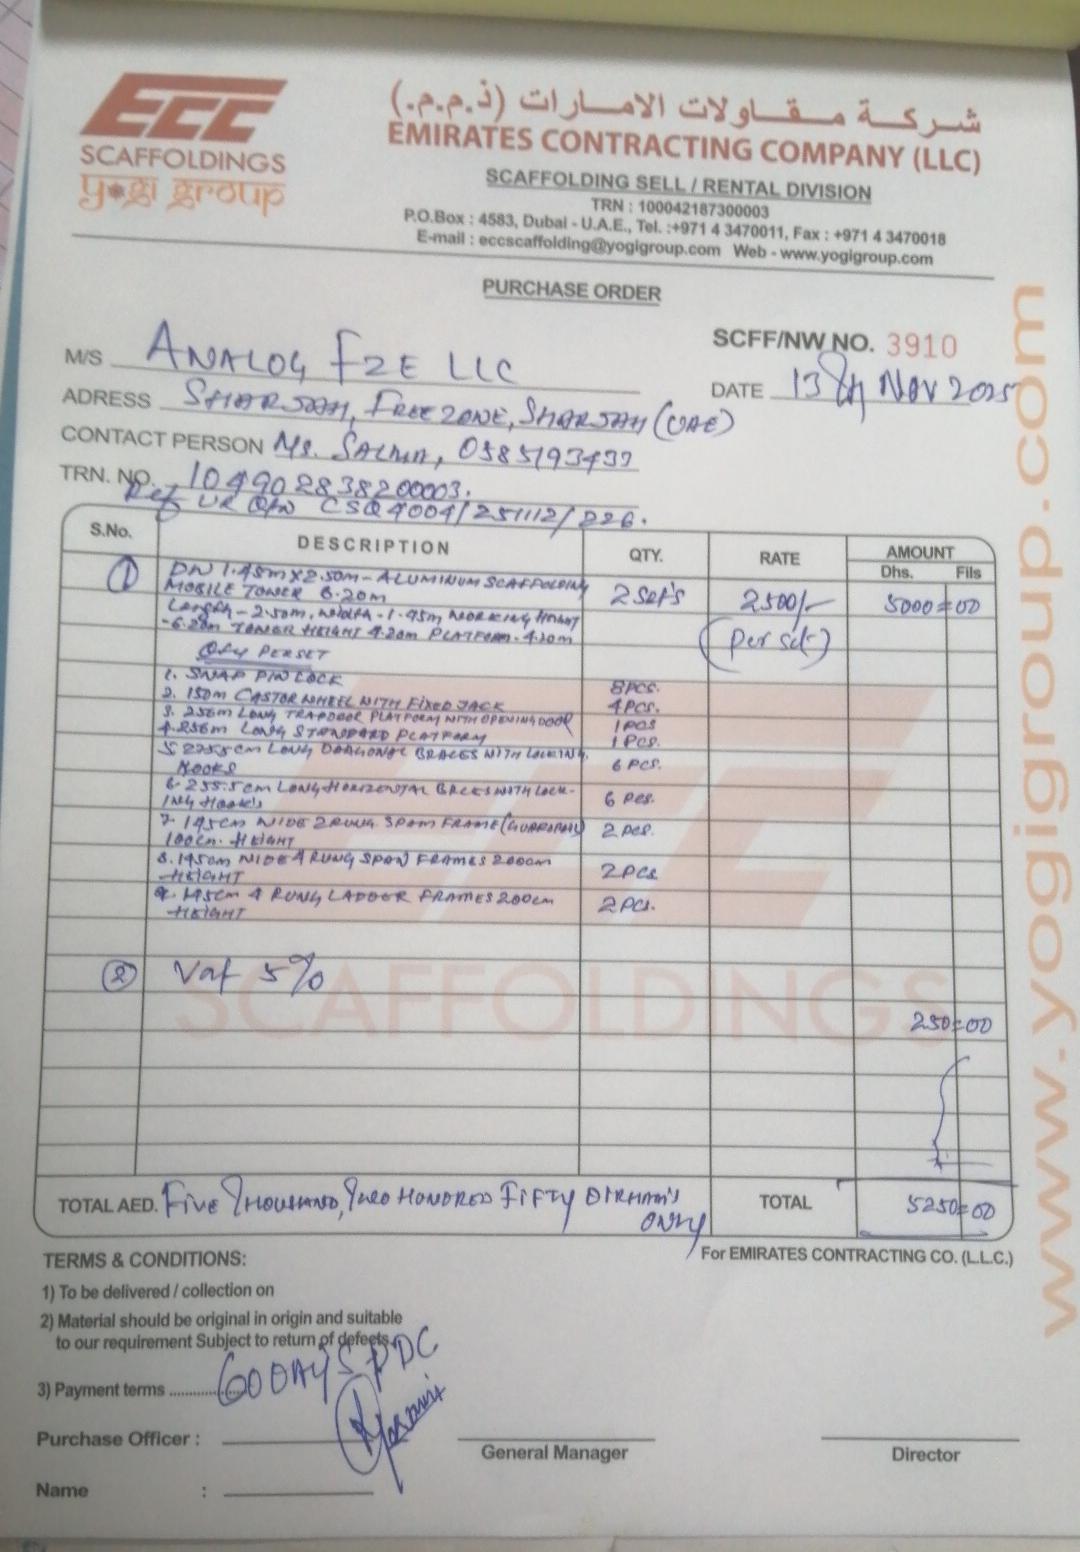 ECC
SCAFFOLDINGS
yogi group
شركة مقاولات الامارات (ذ.م.م.)
EMIRATES CONTRACTING COMPANY (LLC)
SCAFFOLDING SELL / RENTAL DIVISION
TRN : 100042187300003
P.O.Box : 4583, Dubai - U.A.E., Tel. :+971 4 3470011, Fax : +971 4 3470018
E-mail : eccscaffolding@yogigroup.com Web - www.yogigroup.com
PURCHASE ORDER
SCFF/NW NO. 3910
M/S ANALOG FZE LLC
DATE 13th NOV 2025
ADRESS SHARJAH, FREEZONE, SHARJAH (UAE)
CONTACT PERSON Ms. SALMA, 0585193437
TRN. NO. 104902838200003.
Ref UR QTN CSQ4004/251112/226.
S.No. DESCRIPTION QTY. RATE AMOUNT
Dhs. Fils
1 DW 1.45m x 2.50m - ALUMINUM SCAFFOLDING 2 Set's 2500/- 5000=00
MOBILE TOWER 6.20m
Length - 2.50m, Width - 1.45m WORKING HEIGHT (Per set)
-6.20m TOWER HEIGHT 4.20m PLATFORM - 4.20m
Qty PER SET
1. SNAP PIN LOCK 8 PCS.
2. 150m CASTOR WHEEL WITH FIXED JACK 4 PCS.
3. 250m LONG TRAPDOOR PLATFORM WITH OPENING DOOR 1 PCS
4. 250m LONG STANDARD PLATFORM 1 PCS.
5. 275.5cm LONG DIAGONAL BRACES WITH LOCKING 6 PCS.
HOOKS
6. 255.5cm LONG HORIZENTAL BRCES WITH LOCK- 6 PCS.
ING HOOK'S
7. 145cm WIDE 2 RUNG SPAM FRAME (GUARDRAIL) 2 PCS.
100cm. HEIGHT
8. 145cm WIDE 4 RUNG SPAN FRAMES 200cm 2 PCS
HEIGHT
9. 145cm 4 RUNG LADDER FRAMES 200cm 2 PCS.
HEIGHT
2 Vat 5%
250=00
SCAFFOLDINGS
TOTAL AED. FIVE THOUSAND, TWO HONDRED FIFTY DIRHAM'S TOTAL 5250=00
ONLY
For EMIRATES CONTRACTING CO. (L.L.C.)
TERMS & CONDITIONS:
1) To be delivered / collection on
2) Material should be original in origin and suitable
to our requirement Subject to return of defects.
3) Payment terms .............. 60 DAYS PDC
Purchase Officer :
General Manager
Director
Name :
www.yogigroup.com